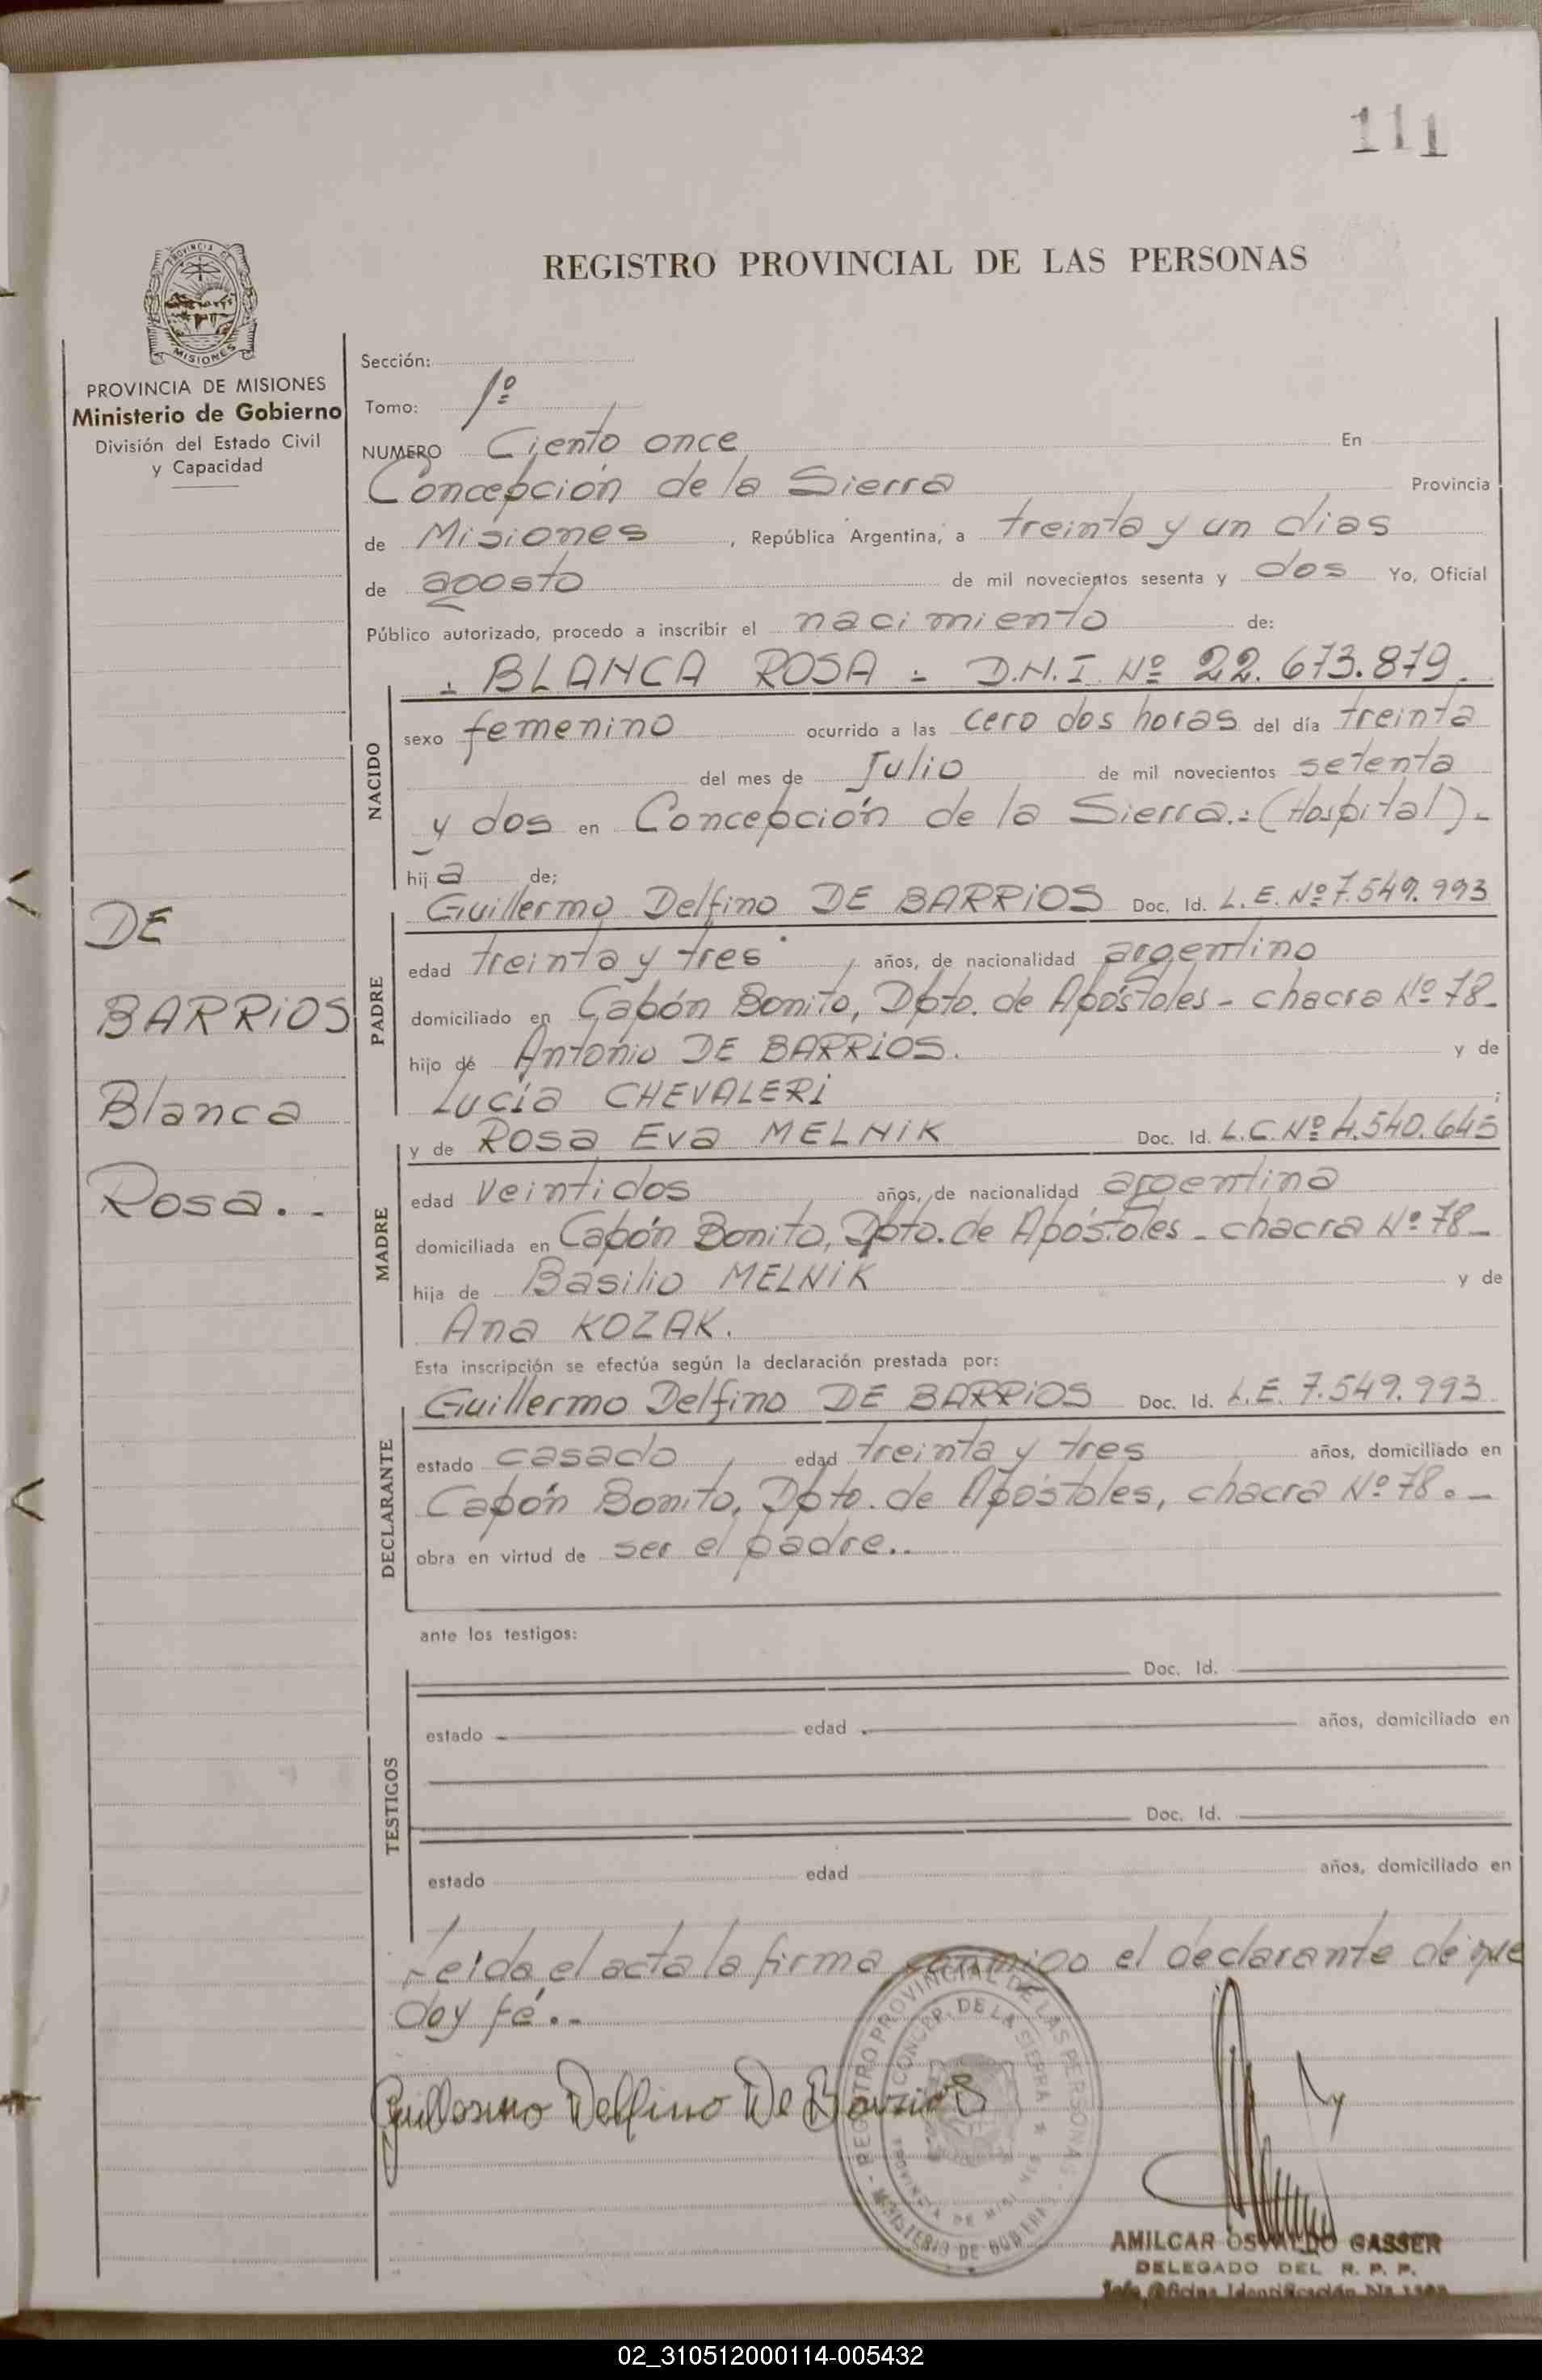 111
REGISTRO PROVINCIAL DE LAS PERSONAS
PROVINCIA DE MISIONES
Ministerio de Gobierno
División del Estado Civil
y Capacidad
Sección:
Tomo: 1º
NUMERO Ciento once En
Concepción de la Sierra Provincia
de Misiones, República Argentina, a treinta y un dias
de agosto de mil novecientos sesenta y dos Yo, Oficial
Público autorizado, procedo a inscribir el nacimiento de:
BLANCA ROSA = D.N.I. Nº 22.673.879.
NACIDO
sexo femenino ocurrido a las cero dos horas del día treinta
del mes de Julio de mil novecientos setenta
y dos en Concepción de la Sierra.=(Hospital)-
hija de;
Guillermo Delfino DE BARRIOS Doc. Id. L.E. Nº 7.549.993
PADRE
edad treinta y tres años, de nacionalidad argentino
domiciliado en Capón Bonito, Dpto. de Apóstoles - chacra Nº 78-
hijo de Antonio DE BARRIOS. y de
Lucía CHEVALERI;
y de Rosa Eva MELNIK Doc. Id. L.C. Nº 4.540.645
MADRE
edad veintidos años, de nacionalidad argentina
domiciliada en Capón Bonito, Dpto. de Apóstoles - chacra Nº 78-
hija de Basilio MELNIK y de
Ana KOZAK.
Esta inscripción se efectúa según la declaración prestada por:
Guillermo Delfino DE BARRIOS Doc. Id. L.E. 7.549.993
DECLARANTE
estado casado, edad treinta y tres años, domiciliado en
Capón Bonito, Dpto. de Apóstoles, chacra Nº 78.-
obra en virtud de ser el padre..
ante los testigos:
TESTIGOS
Doc. Id.
estado edad años, domiciliado en
Doc. Id.
estado edad años, domiciliado en
Leida el acta la firma conmigo el declarante de que
doy fé.-
Guillermo Delfino De Barrios
DE
BARRIOS
Blanca
Rosa.-
REGISTRO PROVINCIAL DE LAS PERSONAS
CONCEP. DE LA SIERRA
PROVINCIA DE MISIONES
MINISTERIO DE GOBIERNO
AMILCAR OSVALDO GASSER
DELEGADO DEL R. P. P.
Jefe Oficina Identificación
02_310512000114-005432